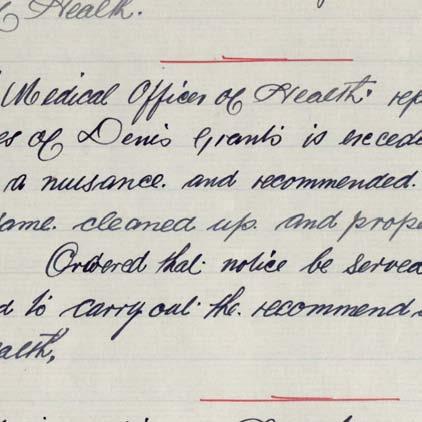 of Health.
Medical Officer of Health: rep
es of Denis Grant's is exceed
a nuisance. and recommended.
same. cleaned up. and prope
Ordered that notice be served
d to carry out the. recommend
ealth,